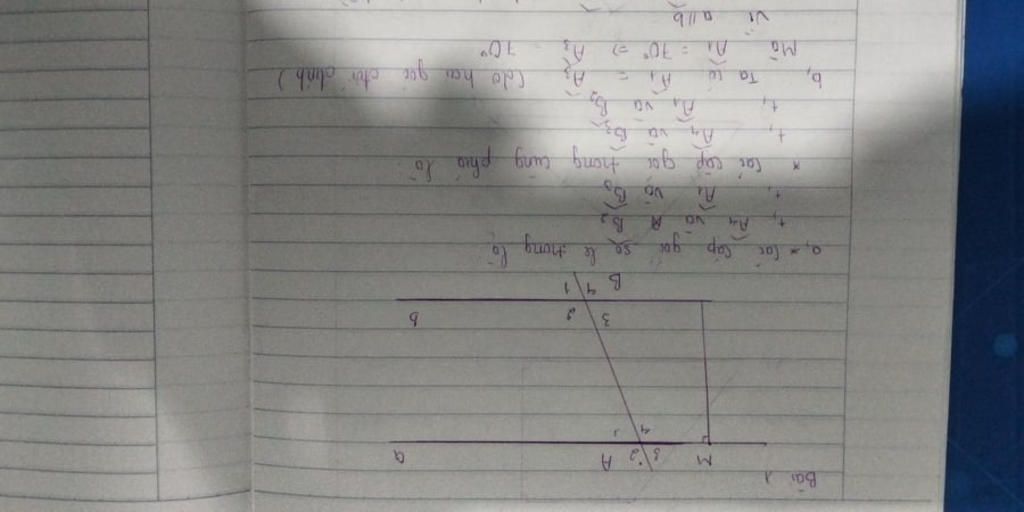 Bài 1
M 3 2 A a
4 1
3 2 B
4 1
B
a, * Các cặp góc so le trong là
+, A₄ và B₂
+, A₁ và B₃
* Các cặp góc trong cùng phía là
+, A₄ và B₃
+, A₁ và B₂
b, Ta có A₁ = A₃ (do hai góc đối đỉnh)
Mà A₁ = 70° => A₃ = 70°
Vì a//b